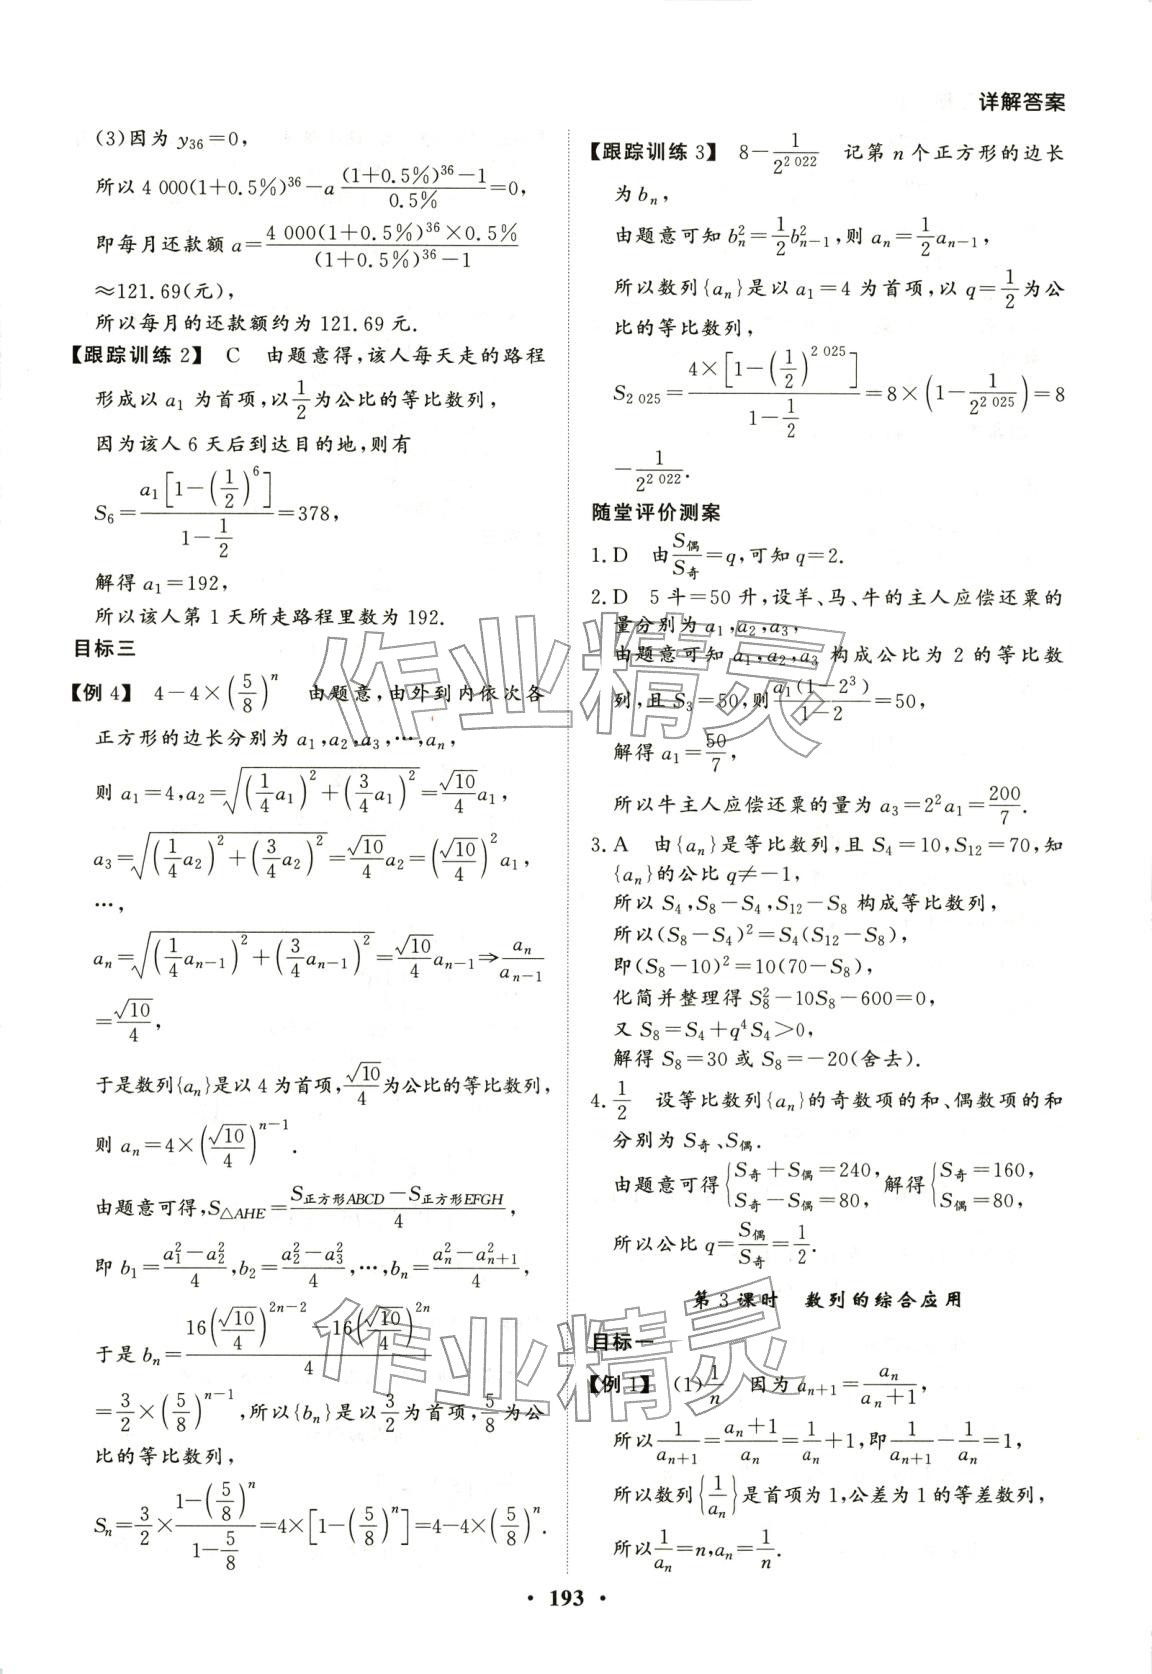 详解答案
(3)因为 y₃₆=0,
所以 4 000(1+0.5%)³⁶-a\frac{(1+0.5%)³⁶-1}{0.5%}=0,
即每月还款额 a=\frac{4 000(1+0.5%)³⁶×0.5%}{(1+0.5%)³⁶-1}
≈121.69(元),
所以每月的还款额约为 121.69 元.
【跟踪训练 2】 C 由题意得,该人每天走的路程
形成以 a₁ 为首项,以\frac{1}{2}为公比的等比数列,
因为该人 6 天后到达目的地,则有
S₆=\frac{a₁[1-(\frac{1}{2})⁶]}{1-\frac{1}{2}}=378,
解得 a₁=192,
所以该人第 1 天所走路程里数为 192.
目标三
【例 4】 4-4×(\frac{5}{8})ⁿ 由题意,由外到内依次各
正方形的边长分别为 a₁,a₂,a₃,…,aₙ,
则 a₁=4,a₂=\sqrt{(\frac{1}{4}a₁)²+(\frac{3}{4}a₁)²}=\frac{\sqrt{10}}{4}a₁,
a₃=\sqrt{(\frac{1}{4}a₂)²+(\frac{3}{4}a₂)²}=\frac{\sqrt{10}}{4}a₂=(\frac{\sqrt{10}}{4})²a₁,
…,
aₙ=\sqrt{(\frac{1}{4}aₙ₋₁)²+(\frac{3}{4}aₙ₋₁)²}=\frac{\sqrt{10}}{4}aₙ₋₁⇒\frac{aₙ}{aₙ₋₁}
=\frac{\sqrt{10}}{4},
于是数列{aₙ}是以 4 为首项,\frac{\sqrt{10}}{4}为公比的等比数列,
则 aₙ=4×(\frac{\sqrt{10}}{4})ⁿ⁻¹.
由题意可得,S_{△AHE}=\frac{S_{正方形ABCD}-S_{正方形EFGH}}{4},
即 b₁=\frac{a₁²-a₂²}{4},b₂=\frac{a₂²-a₃²}{4},…,bₙ=\frac{aₙ²-aₙ₊₁²}{4},
于是 bₙ=\frac{16(\frac{\sqrt{10}}{4})²ⁿ⁻²-16(\frac{\sqrt{10}}{4})²ⁿ}{4}
=\frac{3}{2}×(\frac{5}{8})ⁿ⁻¹,所以{bₙ}是以\frac{3}{2}为首项,\frac{5}{8}为公
比的等比数列,
Sₙ=\frac{3}{2}×\frac{1-(\frac{5}{8})ⁿ}{1-\frac{5}{8}}=4×[1-(\frac{5}{8})ⁿ]=4-4×(\frac{5}{8})ⁿ.
【跟踪训练 3】 8-\frac{1}{2^{2 022}} 记第 n 个正方形的边长
为 bₙ,
由题意可知 bₙ²=\frac{1}{2}bₙ₋₁²,则 aₙ=\frac{1}{2}aₙ₋₁,
所以数列{aₙ}是以 a₁=4 为首项,以 q=\frac{1}{2}为公
比的等比数列,
S_{2 025}=\frac{4×[1-(\frac{1}{2})^{2 025}]}{1-\frac{1}{2}}=8×(1-\frac{1}{2^{2 025}})=8
-\frac{1}{2^{2 022}}.
随堂评价测案
1.D 由\frac{S_偶}{S_奇}=q,可知 q=2.
2.D 5 斗=50 升,设羊、马、牛的主人应偿还粟的
量分别为 a₁,a₂,a₃,
由题意可知 a₁,a₂,a₃ 构成公比为 2 的等比数
列,且 S₃=50,则\frac{a₁(1-2³)}{1-2}=50,
解得 a₁=\frac{50}{7},
所以牛主人应偿还粟的量为 a₃=2²a₁=\frac{200}{7}.
3.A 由{aₙ}是等比数列,且 S₄=10,S₁₂=70,知
{aₙ}的公比 q≠-1,
所以 S₄,S₈-S₄,S₁₂-S₈ 构成等比数列,
所以(S₈-S₄)²=S₄(S₁₂-S₈),
即(S₈-10)²=10(70-S₈),
化简并整理得 S₈²-10S₈-600=0,
又 S₈=S₄+q⁴S₄>0,
解得 S₈=30 或 S₈=-20(舍去).
4.\frac{1}{2} 设等比数列{aₙ}的奇数项的和、偶数项的和
分别为 S_奇、S_偶.
由题意可得{S_奇+S_偶=240, S_奇-S_偶=80, 解得{S_奇=160, S_偶=80,
所以公比 q=\frac{S_偶}{S_奇}=\frac{1}{2}.
第 3 课时 数列的综合应用
目标一
【例 1】 (1)\frac{1}{n} 因为 aₙ₊₁=\frac{aₙ}{aₙ+1},
所以\frac{1}{aₙ₊₁}=\frac{aₙ+1}{aₙ}=\frac{1}{aₙ}+1,即\frac{1}{aₙ₊₁}-\frac{1}{aₙ}=1,
所以数列{\frac{1}{aₙ}}是首项为 1,公差为 1 的等差数列,
所以\frac{1}{aₙ}=n,aₙ=\frac{1}{n}.
• 193 •
作业精灵
作业精灵